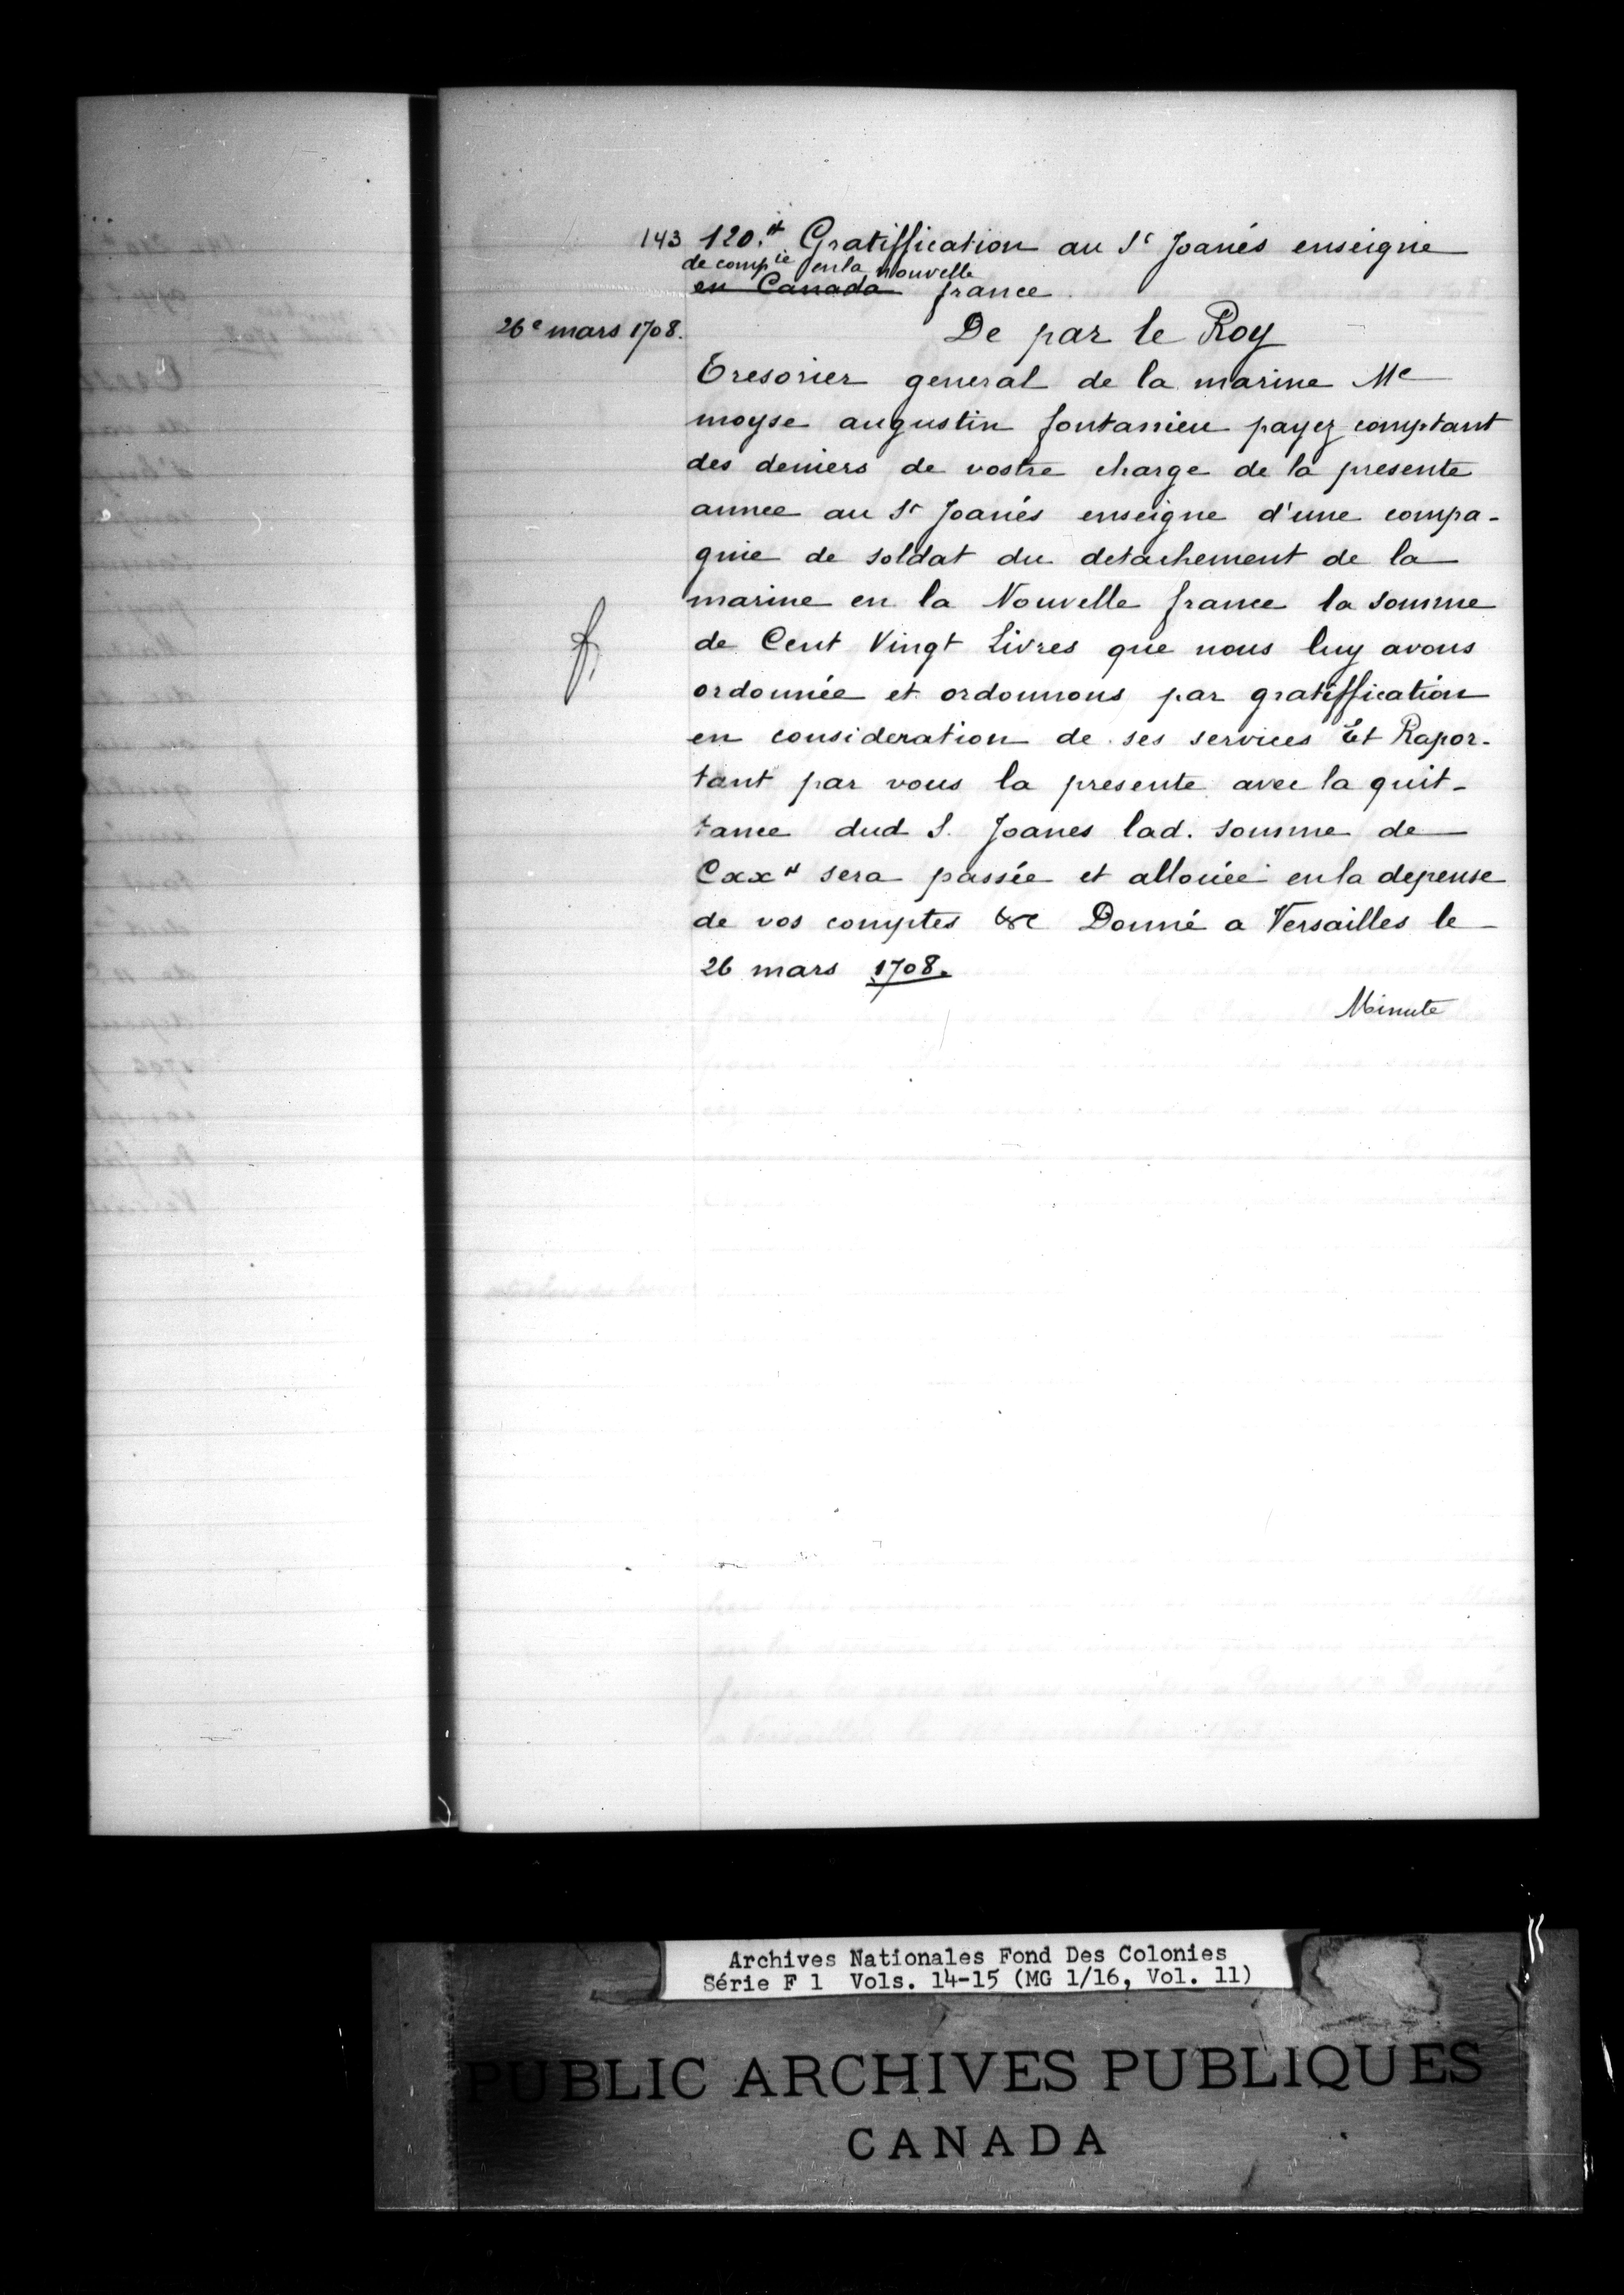 143 120.# Gratiffication au Sr Joanés enseigne
de compie en la nouvelle
en Canada france
26e mars 1708.
De par le Roy
Tresorier general de la marine Me
moyse augustin fontanieu payez comptant
des deniers de vostre charge de la presente
annee au Sr Joanés enseigne d'une compa-
gnie de soldat du detachement de la
marine en la Nouvelle france la somme
de Cent Vingt Livres que nous luy avons
ordonnée et ordonnons par gratiffication
en consideration de ses services Et Rapor-
tant par vous la presente avec la quit-
tance dud S. Joanes lad. somme de
Cxx# sera passée et allouée en la depense
de vos comptes &c Donné a Versailles le
26 mars 1708.
Minute
Archives Nationales Fond Des Colonies
Série F 1 Vols. 14-15 (MG 1/16, Vol. 11)
PUBLIC ARCHIVES PUBLIQUES
CANADA